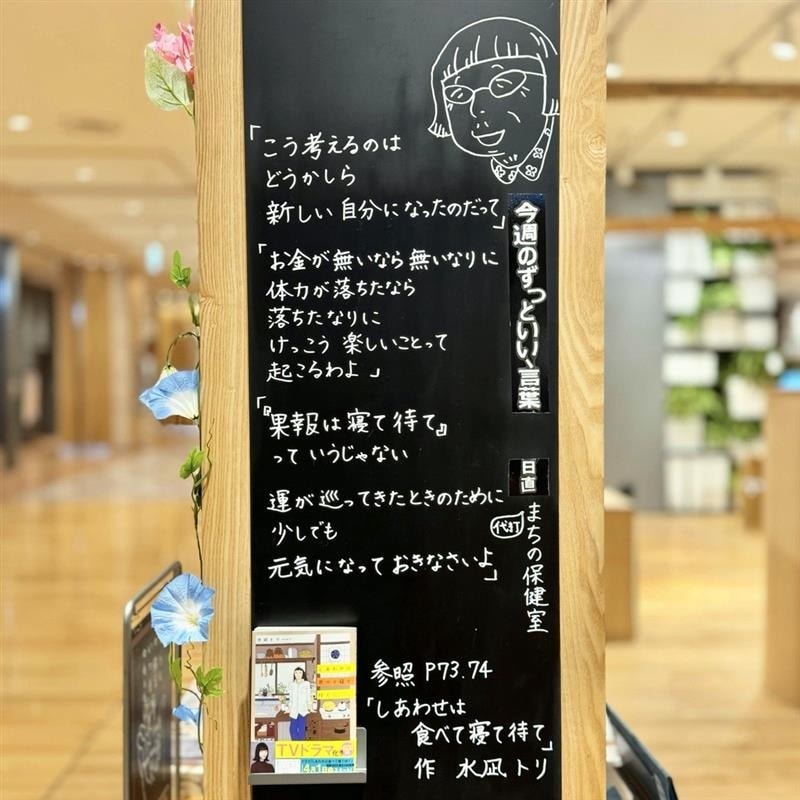 今週のずっといい言葉
日直
代打
まちの保健室
「こう考えるのは
どうかしら
新しい自分になったのだって」
「お金が無いなら無いなりに
体力が落ちたなら
落ちたなりに
けっこう楽しいことって
起こるわよ」
「『果報は寝て待て』
っていうじゃない
運が巡ってきたときのために
少しでも
元気になっておきなさいよ」
参照 P73.74
「しあわせは
食べて寝て待て」
作 水凪トリ
TVドラマ化